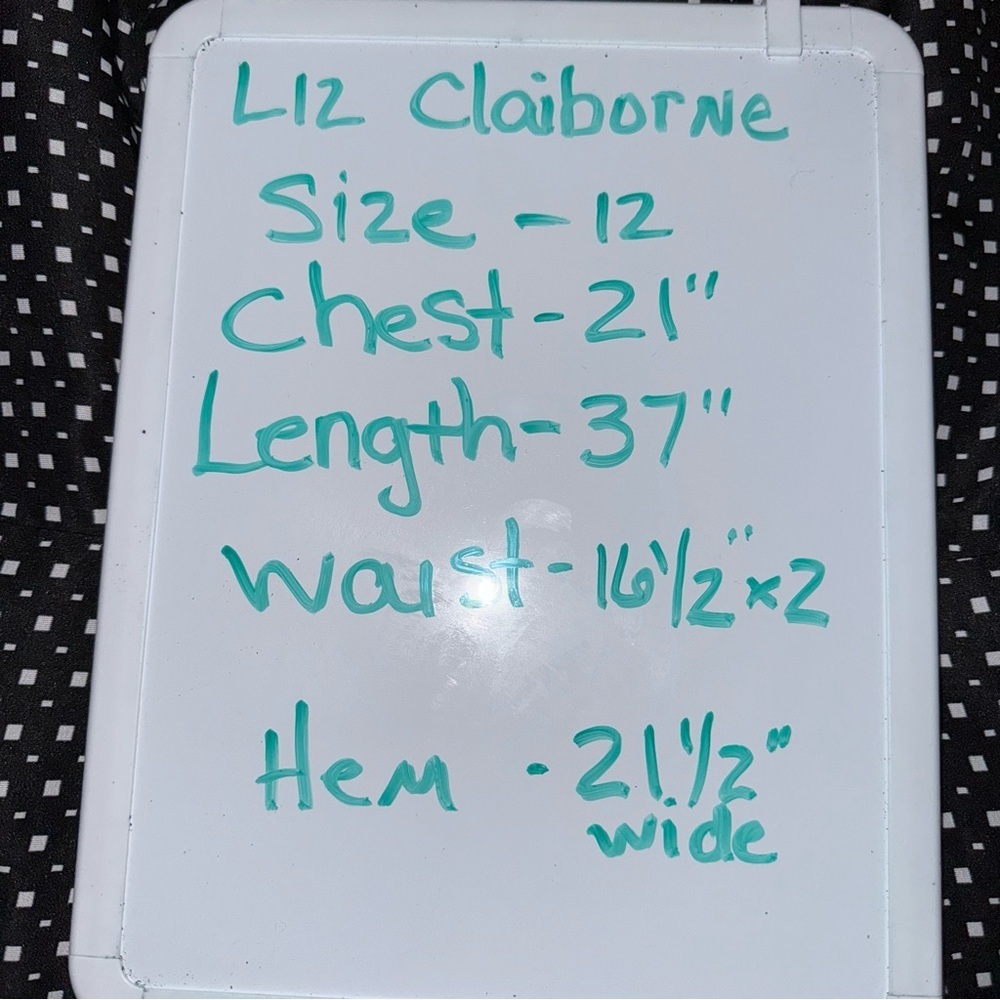 LIZ Claiborne
Size - 12
Chest - 21"
Length - 37"
Waist - 16 1/2" x 2
Hem - 21 1/2"
wide